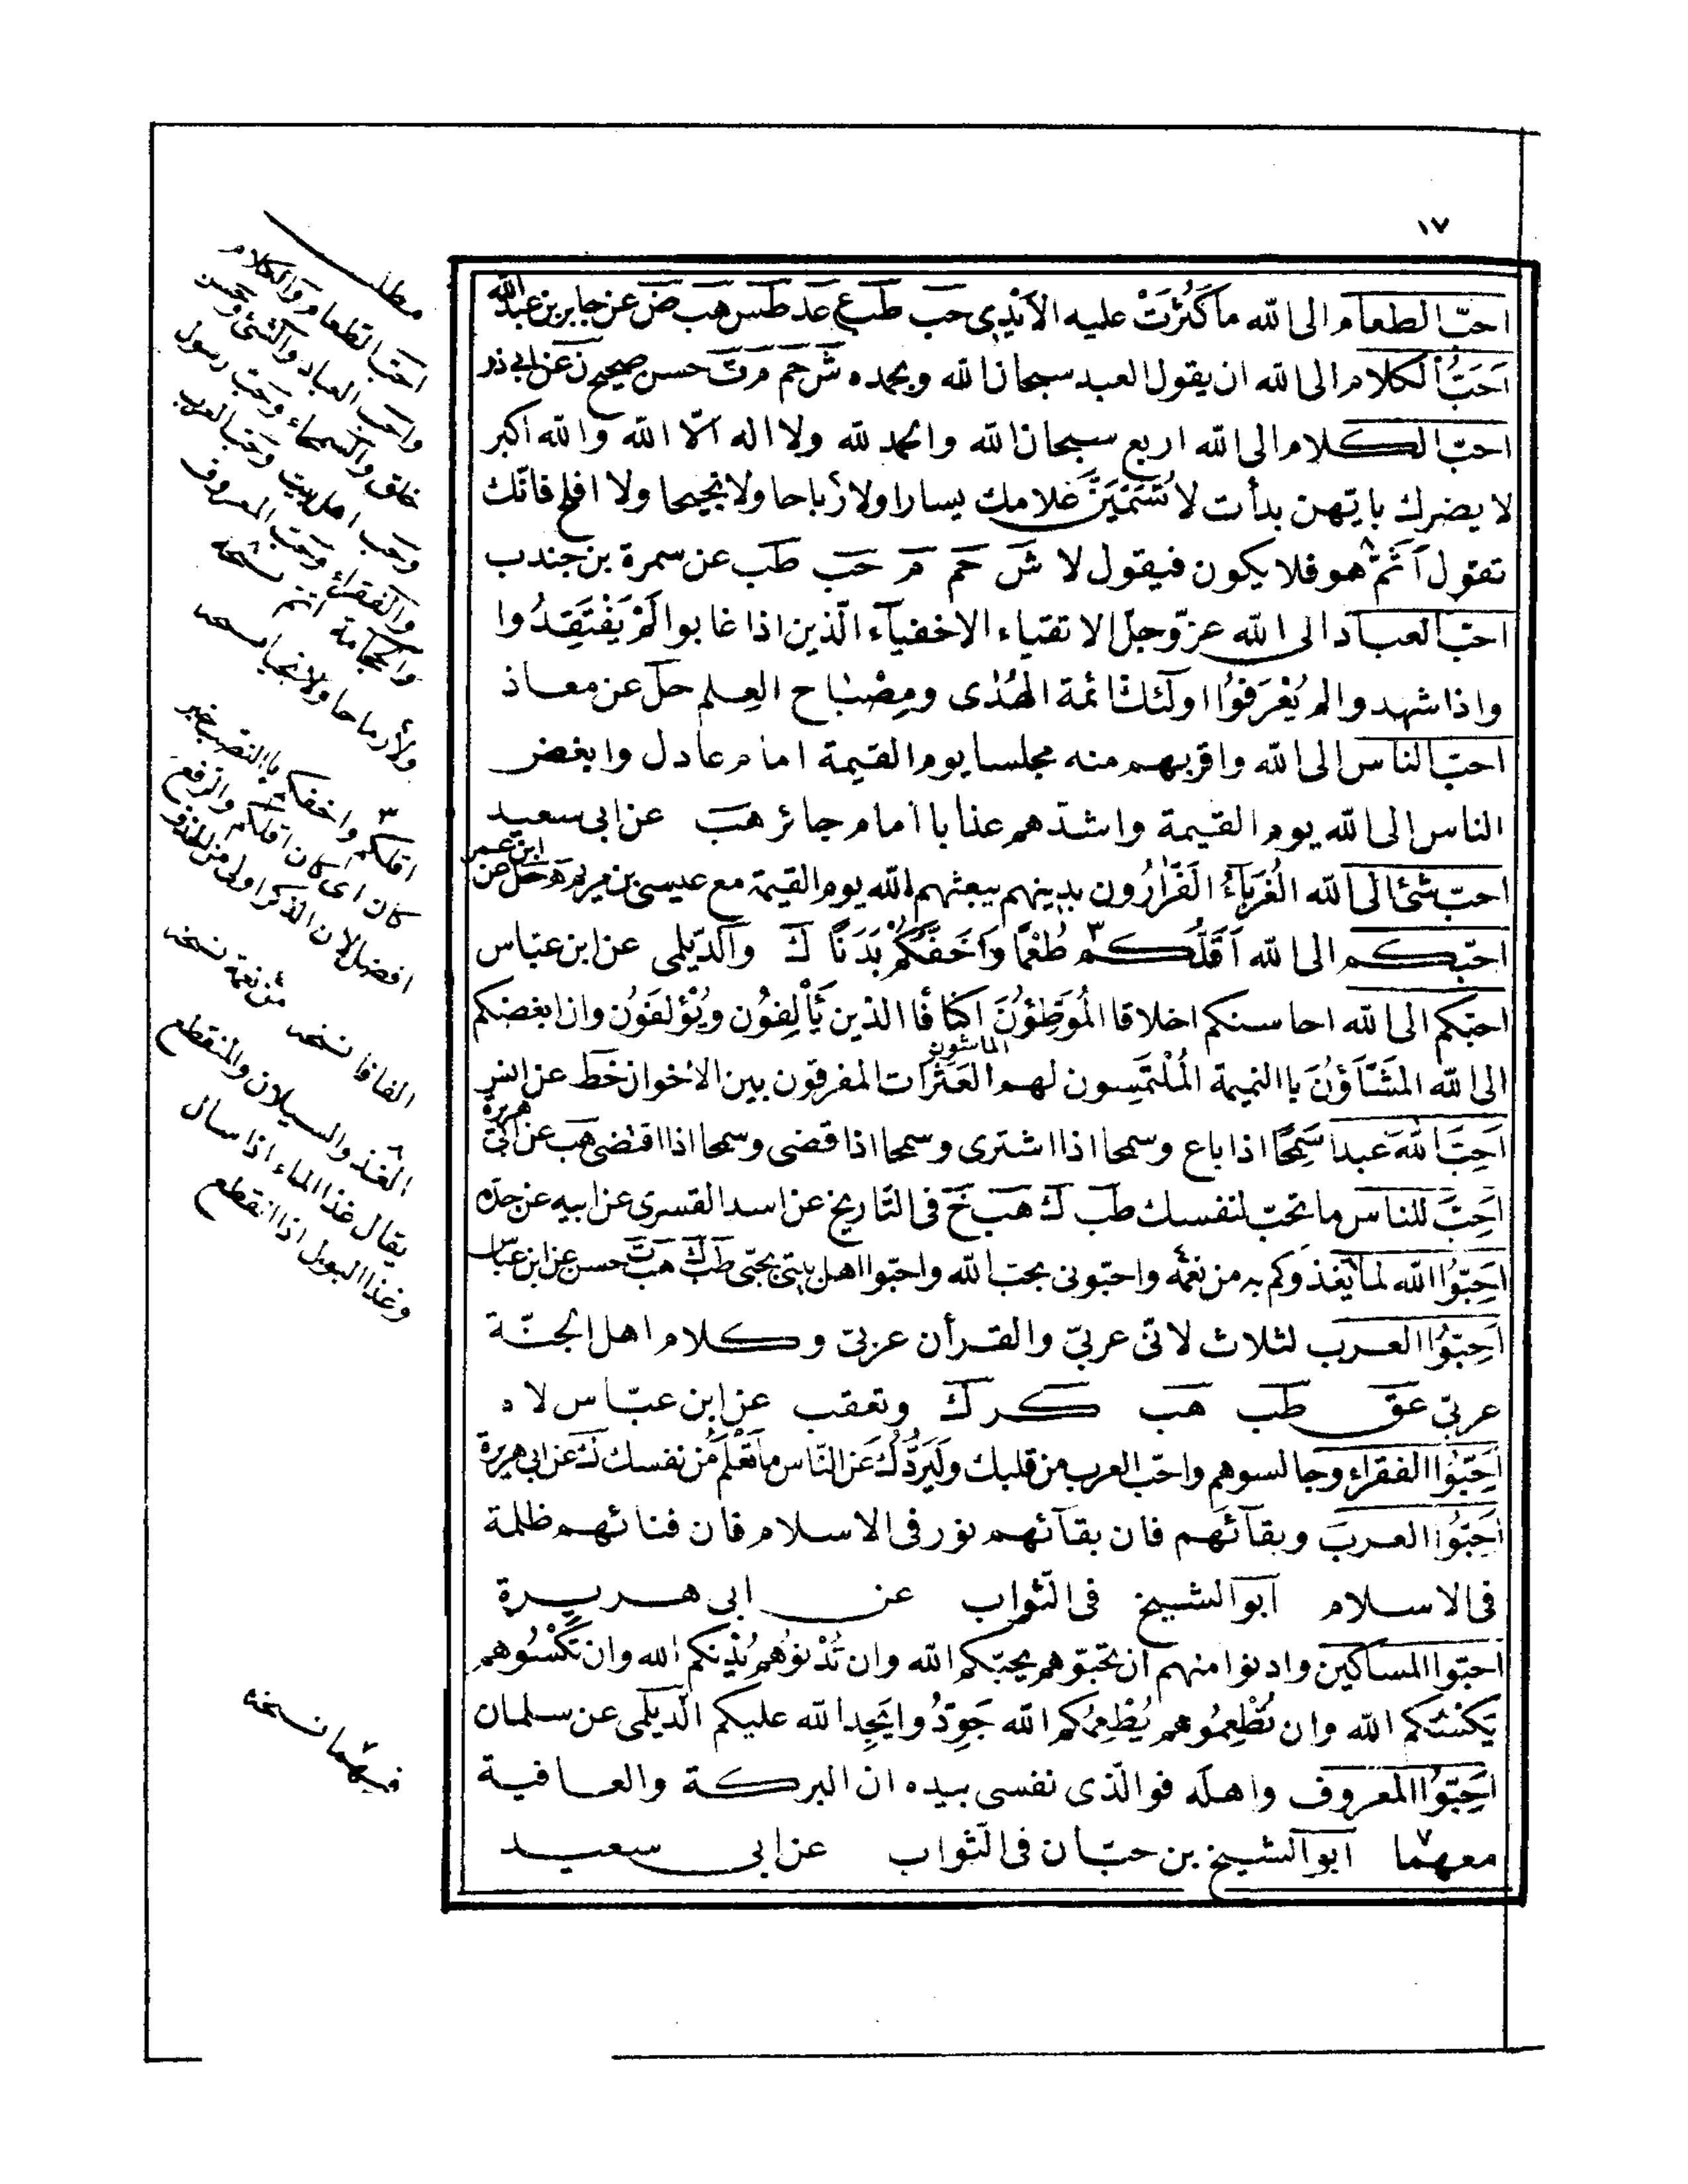 ١٧
احبّ الطعام الى الله ما كَثُرَتْ عليه الاَيْدِى حَبَ طَبَ ع عَد طَس هَب ضَ عن جابر بن عبد الله
اَحَبُّ الكلام الى الله ان يقول العبد سبحان الله وبحمده شَ حَم مَ تَ حسن صحيح نَ عن ابى ذر
احبّ الكلام الى الله اربع سبحان الله والحمد لله ولا اله الّا الله والله اكبر
لا يضرك بايّهن بدأت لا تُسَمِّيَنَّ غلامك يسارا ولا رَباحا ولا نجيحا ولا افلح فانّك
تقول اَثَمَّ هو فلا يكون فيقول لا شَ حَم مَ حَب طَب عن سمرة بن جندب
احبّ العباد الى الله عزّ وجلّ الاتقياء الاخفياء الّذين اذا غابوا لَمْ يُفْتَقِدُوا
واذا شهدوا لم يُعْرَفُوا اولئك ائمة الهُدٰى ومِصْبَاح العِلم حلَ عن معاذ
احبّ الناس الى الله واقربهم منه مجلسا يوم القيمة امام عادل وابغض
الناس الى الله يوم القيمة واشدّهم عذابا امام جائر هَبَ عن ابى سعيد
احبّ شئ الى الله الغُرَباَءُ الفَرَّارُون بدينهم يبعثهم الله يوم القيمة مع عيسى بن مريم حَل عن ابن عمر
احبّكم الى الله اَقَلُّكُم٣ طُعْمًا وَاَخَفُّكُمْ بَدَنًا كَ والدّيلمى عن ابن عبّاس
احبّكم الى الله احاسنكم اخلاقا المُوَطِّؤُنَ اَكنَافًا الذين يَأْلِفُون ويُؤْلَفُوْن وان ابغضكم
الى الله المَشَّاَؤُنَ باالنميمة المُلْتَمِسون لهم العَثَرَات المفرقون بين الاخوان خَط عن انس
اَحَبَّ اللهُ عبدا سَمِحًا اذا باع وسمحا اذا اشترى وسمحا اذا قضى وسمحا اذا اقتضى هَب عن ابى هريرة
اَحِبَّ للناس ما تحبّ لنفسك طَب كَ هَب خَ فى التّاريخ عن اسد القسرى عن ابيه عن جدّه
اَحِبّوُا الله لما يَغذوكم به من نعمه واحبّونى بحبّ الله واحبّوا اهل بيتى بحبّى طَب كَ هَب تَ حسن عن ابن عبّاس
اَحِبّوُا العرب لثلاث لانّى عربىّ والقرأن عربىّ وكلام اهل الجنّة
عربىّ عَق طَب هَب كر كَ وتعقب عن ابن عبّاس لا ه
اَحِبّوُا الفقراء وجالسوهم واحبّ العرب من قلبك ولَيَرُدُّكَ عَن النّاس ما تَعْلَمُ من نفسك كَ عن ابى هريرة
اَحِبّوُا العربَ وبقآئَهم فان بقآئهم نور فى الاسلام فان فنائهم ظلمة
فى الاسلام ابو الشيخ فى الثّواب عن ابى هريرة
احبّوا المساكين وادنوا منهم ان تحبّوهم يحبّكم الله وان تُدْنوُهم يُدْنِكم الله وان تَكْسُوهم
يَكْسُكم الله وان تُطْعِمُوهم يُطْعِمُكم الله جَوِّدُوا يَجِد الله عليكم الدّيلمى عن سلمان
اَحِبّوُا المعروف واهله فوالّذى نفسى بيده ان البركة والعافية
معهما ابو الشيخ بن حبّان فى الثّواب عن ابى سعيد
مطلب
احبّ الطعام والكلام
واحب العباد والشئ وحسن
خلق والسمحاء وحبّ رسول
وحب اهل بيت وحب العرب
والفقراء وحبّ المعروف
والحجامة
اثم نسخه
اقلكم واخفكم باالنصب خبر
كان اى كان اقلكم والرفع
افضل لان الذكر اولى من الحذف
من نعمة نسخه
الفافا نسخه
الغذ والسيلان والمنقطع
يقال غذا الماء اذا سال
وغذا البول اذا انقطع
فيهما نسخه